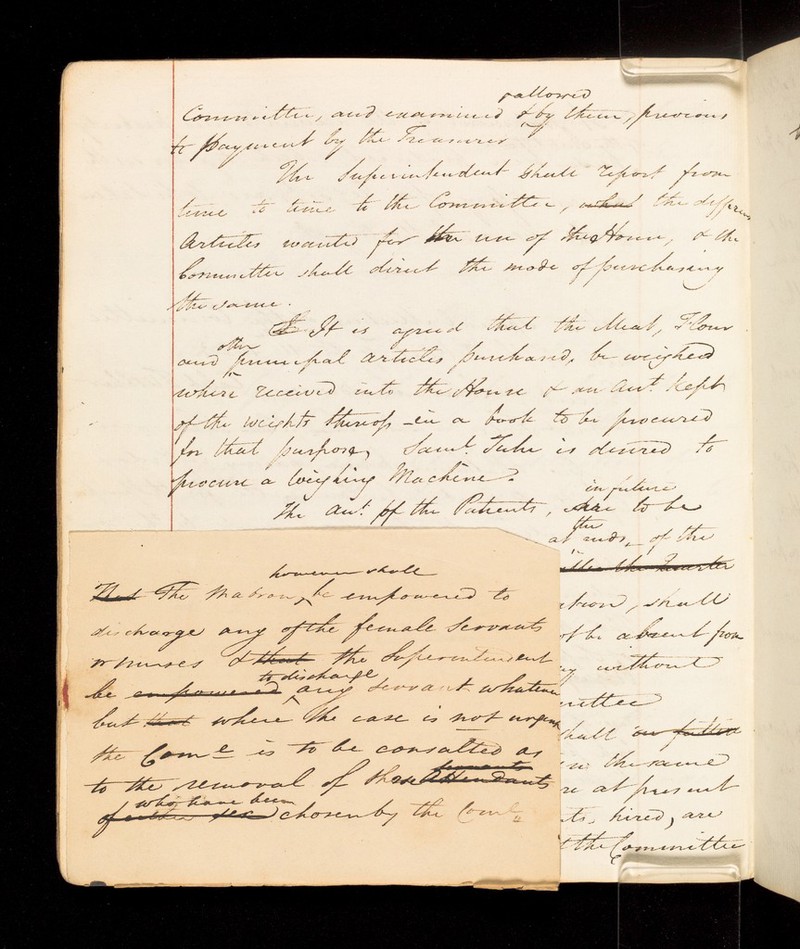 & allowed
Committee, and examined & by them, previous
to payment by the Treasurer
The Superintendent shall report from
time to time to the Committee, what the differen
Articles wanted for the use of the House, & the
Committee shall direct the mode of purchasing
the same.
It is agreed that the Meat, Flour
other
and principal articles purchased, be weighed
where received into the House & an Acct. kept
of the weights thereof in a book to be procured
for that purpose, Saml. Tuke is desired to
procure a Weighing Machine.
in future
The Acct. of the Patients, are to be
the
at ends of the
the Quarter
shall
be absent from
without
shall
the same
at present
hired, are
the Committee
however shall
That The Matron, be empowered to
discharge any of the female Servants
or Nurses & that the Superintendent
to discharge
be empowered any Servant whatever
but that where the case is not urgent
the Come. is to be consulted as
servants
to the removal of those Attendants
who have been
of either sex chosen by the Come.